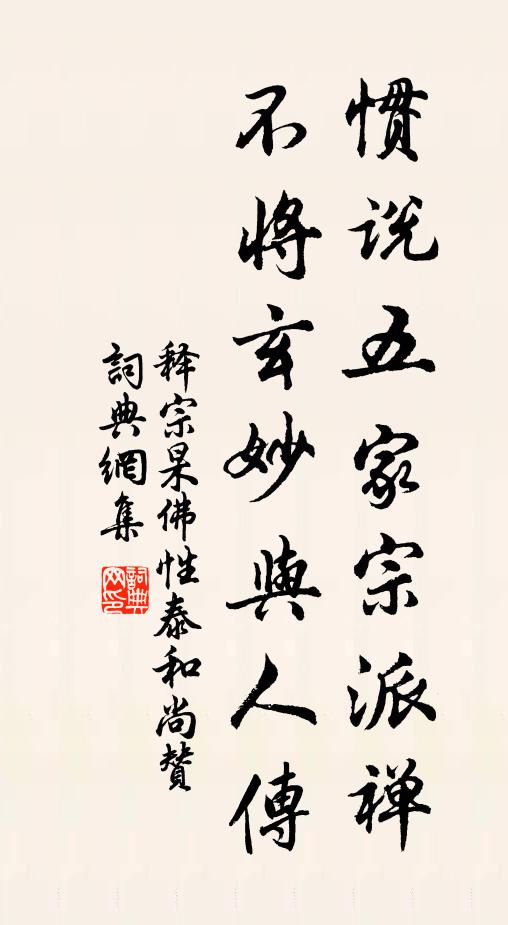 慣説五家宗派禅
不將玄妙與人傳
释宗杲佛性泰和尚赞
詞典網集
詞典网印